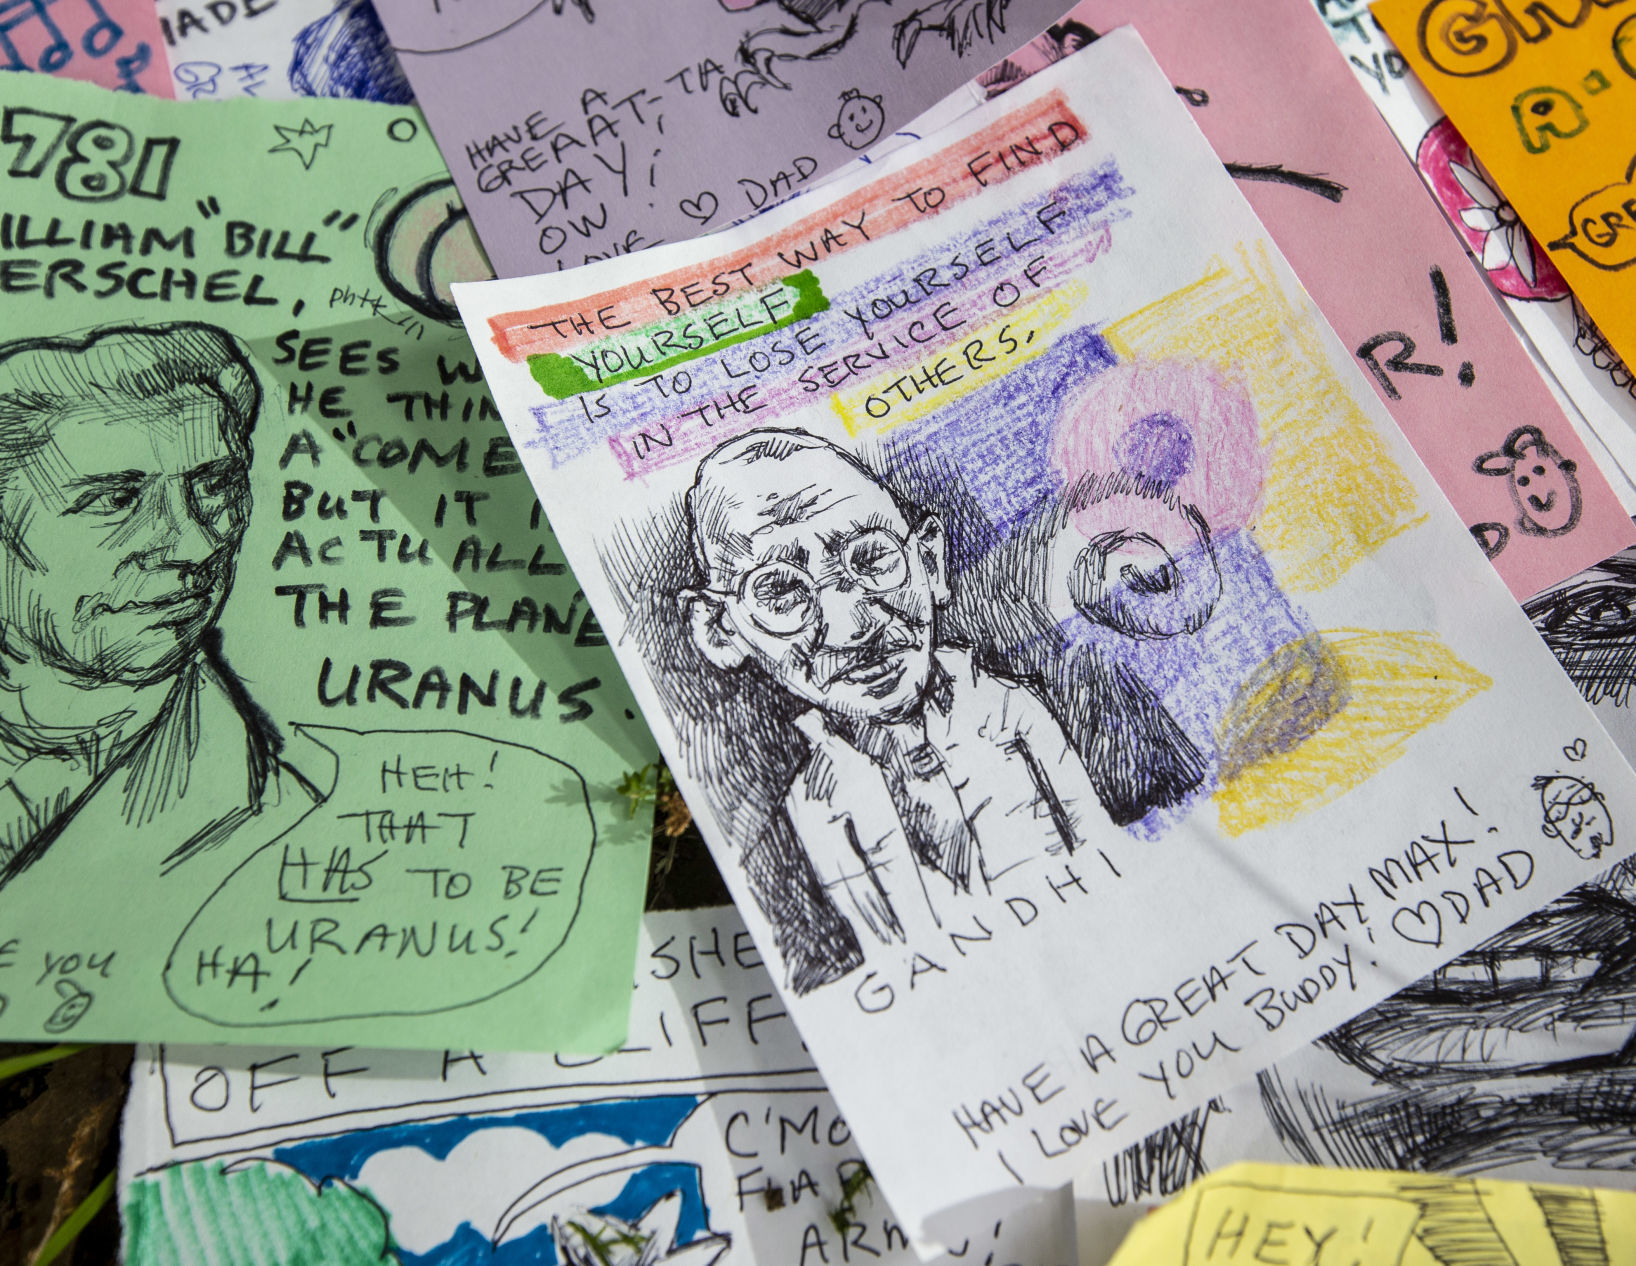 IADE
HAVE A
GREAAT-TA
DAY!
OW!
LOVE
♡ DAD
781
ILLIAM "BILL"
ERSCHEL,
phtt
SEES W
HE THIN
A "COME
BUT IT I
ACTUALL
THE PLANE
URANUS.
HEH!
THAT
HAS TO BE
URANUS!
HA!
E YOU
THE BEST WAY TO FIND
YOURSELF
IS TO LOSE YOURSELF
IN THE SERVICE OF
OTHERS.
GANDHI
HAVE A GREAT DAY MAX!
I LOVE YOU BUDDY! ♡ DAD
R!
D
YO
A
GRE
SHE
OFF A CLIFF
C'MO
FLAP
HEY!